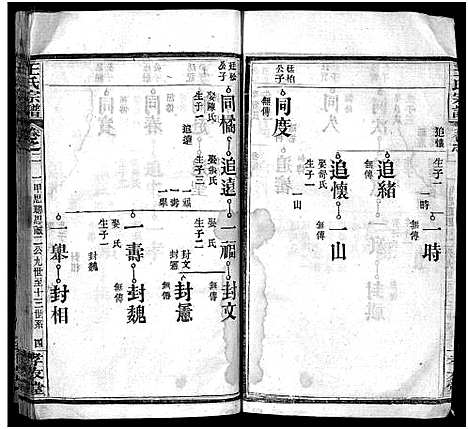 王氏宗譜
卷之
廷柏
公子
同度
無傳
追緒
生子一
一時
一時
無傳
追懷
追懷
娶舒氏
生子一
一山
一山
無傳
廷松
公子
同橘
娶陳氏
生子一
追遠
追遠
娶張氏
生子三
一福
一壽
一舉
一福
娶氏
生子二
封文
封憲
封文
無傳
封憲
無傳
一壽
娶氏
生子一
封魏
封魏
無傳
一舉
生子一
封相
王氏宗譜
卷之二
一甲思聰思敬二公九世至十三世系
四
孝友堂